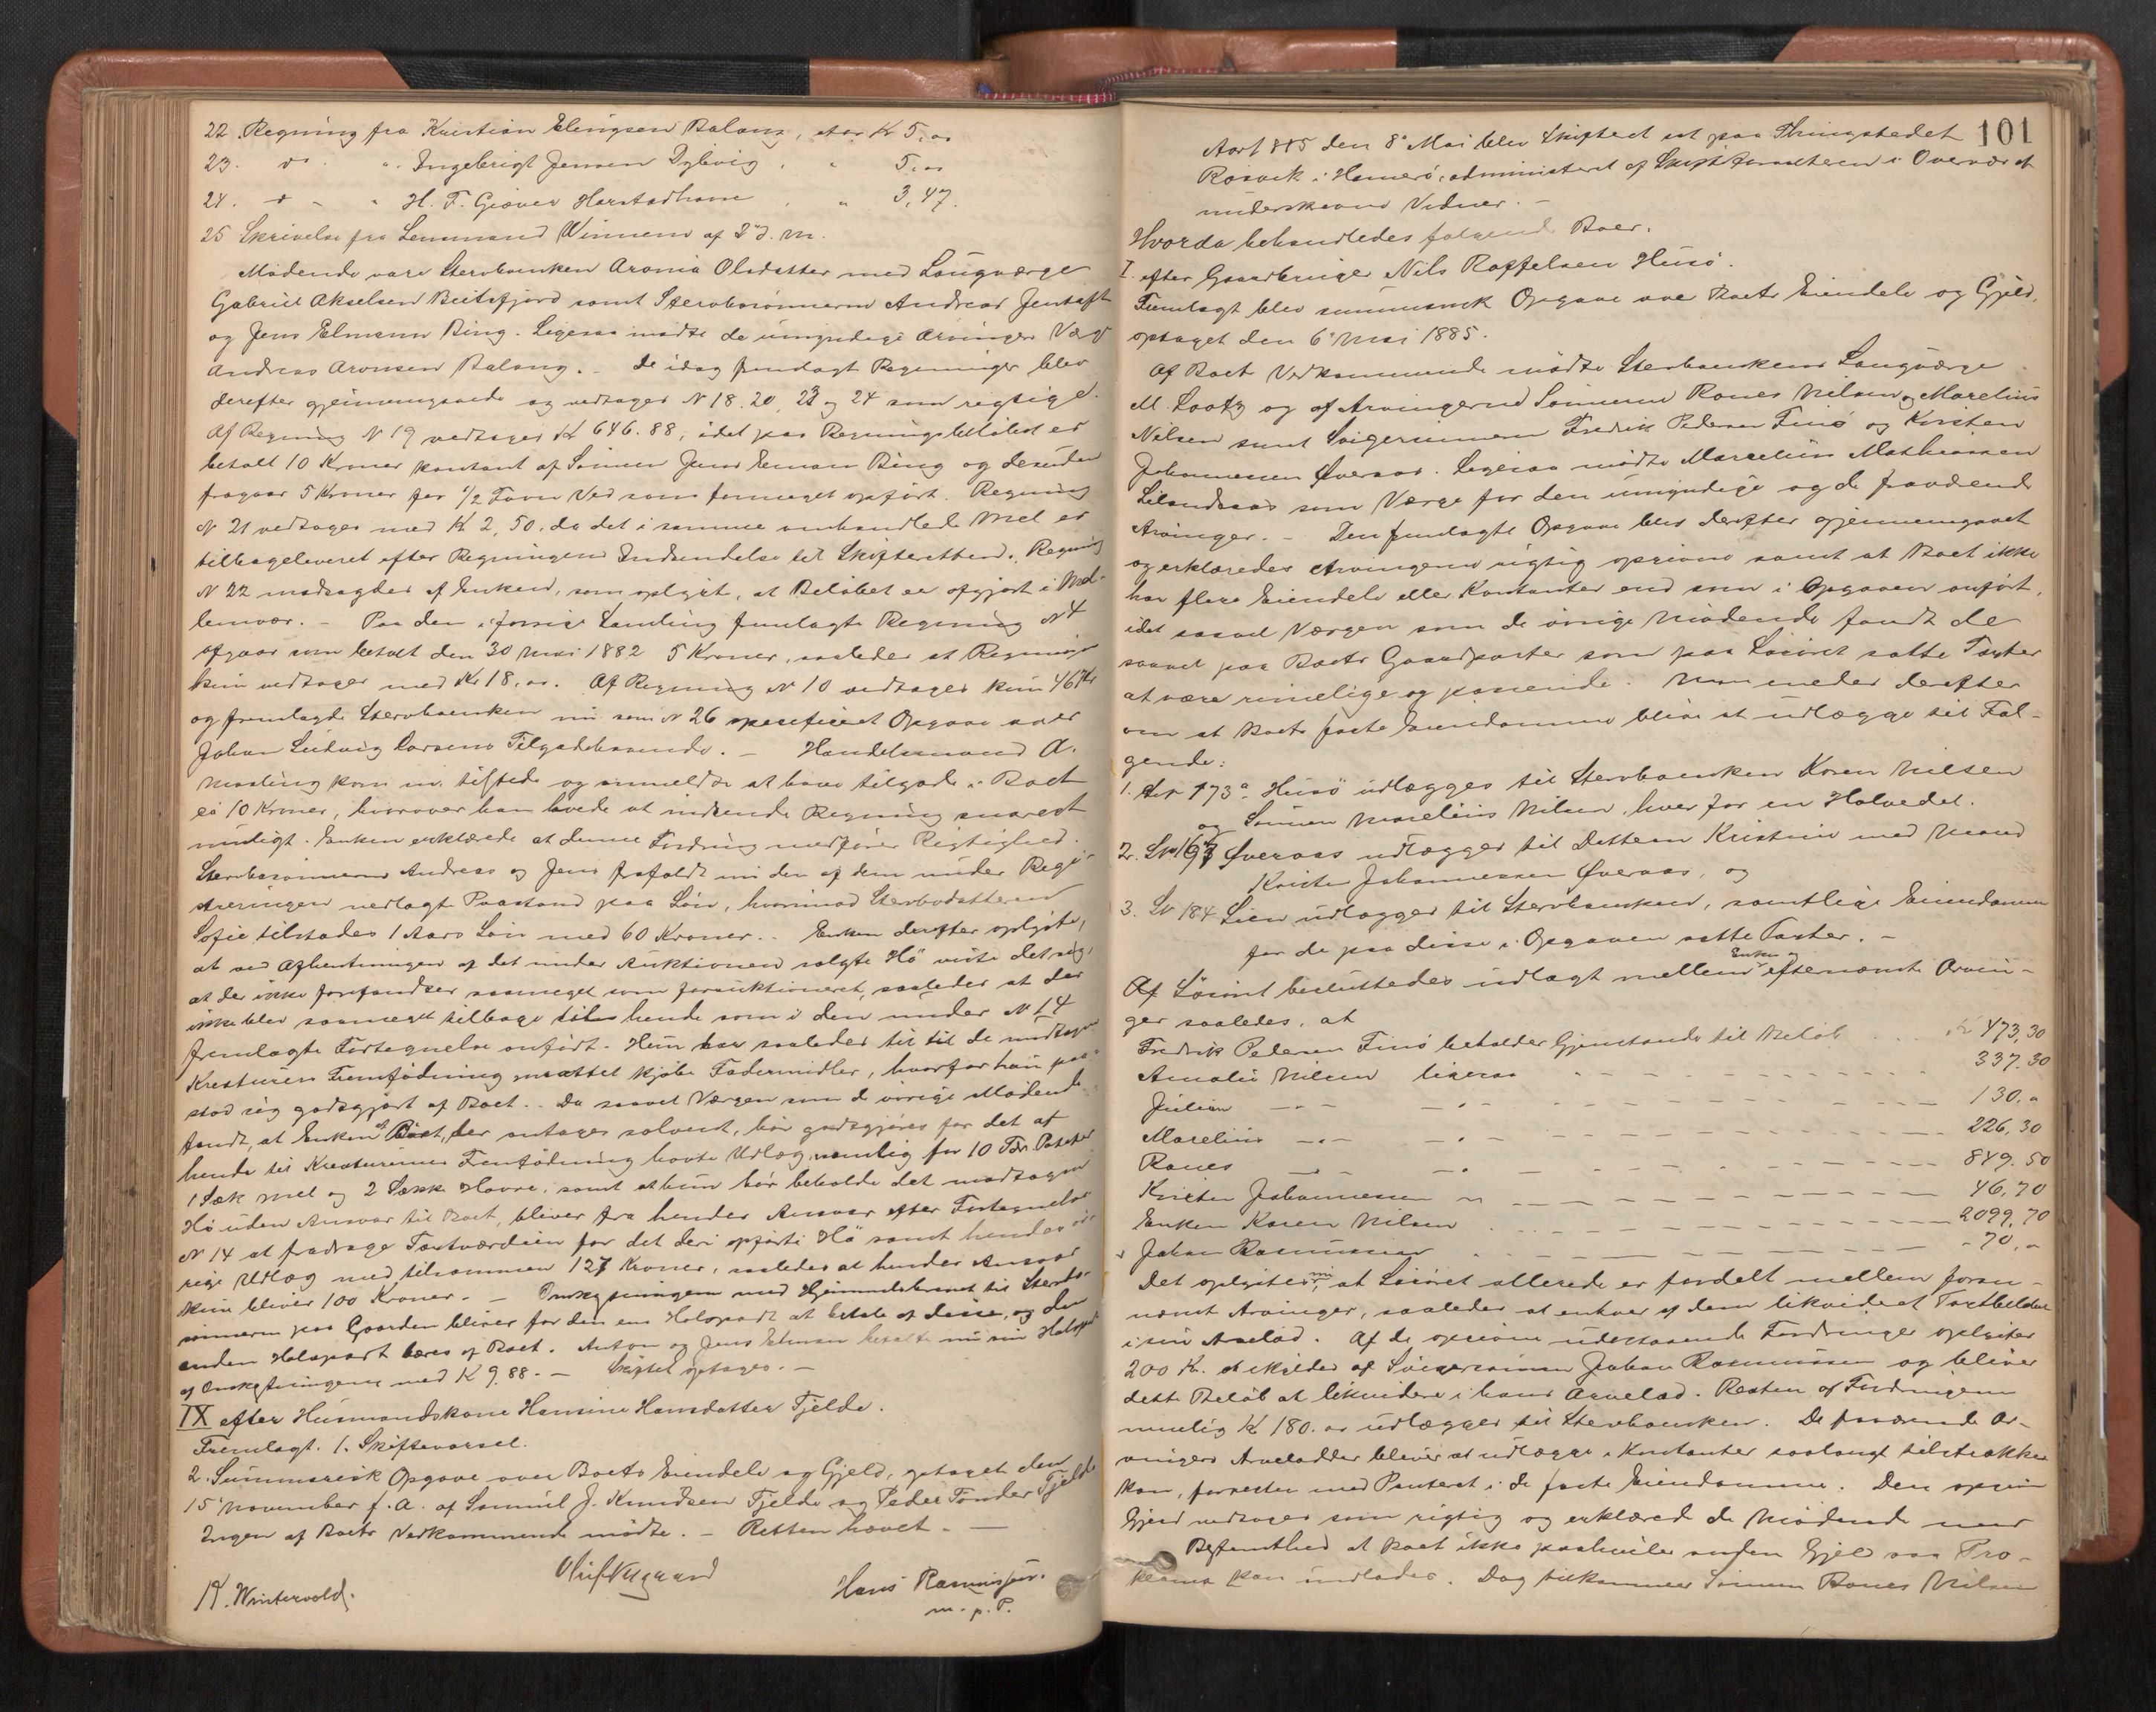 22. Regning fra Kristian Elingsen Balang, stor Kr 5,00
23. do " Ingebrigt Jensen Dybvig, " 5,00
24. do - " H. F. Giæver Harstadhavn, " 3,47.
25 Skrivelse fra Lensmand Winnem af 2 d. M.
Mødende vare Stervboenken Aronia Olsdatter med Laugværge
Gabriel Akselsen Beitsfjord samt Stervbosønnerne Andreas Jentoft
og Jens Elmann Bing. Ligesaa mødte de umyndige Arvingers Værge
Andreas Aronsen Balang. - De idag fremlagte Regninger blev
derefter gjennemgaaede og vedtages N 18. 20, 23 og 24 som rigtige.
Af Regning N 19 vedtages Kr 646.88, idet paa Regningsbeløbet er
betalt 10 Kroner kontant af Sønnen Jens Elmann Bing og desuden
fragaar 5 Kroner for 1/2 Favn Ved som formeget opført. Regning
N 21 vedtages med Kr 2,50, da det i samme omhandlede Mel er
tilbageleveret efter Regningens Indsendelse til Skifteretten. Regning
N 22 modsagdes af Enken, som oplyst, at Beløbet er opgjort i Mel-
lemvær. - Paa den i forrige Samling fremlagte Regning N 4
afgaar som betalt den 30 Mai 1882 5 Kroner, saaledes at Regningen
kun vedtages med Kr 18.00. Af Regning N 10 vedtages kun 46 Kr
og fremlagde Stervboenken nu som N 26 specificeret Opgave over
Johan Ludvig Larsens Tilgodehavende. - Handelsmand A.
Maaling kom nu tilstede og anmeldte at have tilgode i Boet
ca 10 Kroner, hvorover han lovede at indsende Regning snarest
muligt. Enken erklærede at denne Fordring medfører Rigtighed.
Stervbosønnerne Andreas og Jens frafaldt nu den af dem under Regi-
streringen nedlagte Paastand paa Løn, hvorimod Stervbodatteren
Sofie tilstades 1 Aars Løn med 60 Kroner. - Enken derefter oplyste,
at ved Afhentningen af det under Auktionen solgte Hø viste det sig,
at der ikke forefandtes saameget som forauktioneret, saaledes at der
ikke blev saameget tilbage til hende som i den under N 14
fremlagte Fortegnelse anført. Hun har saaledes til de modtagne
Kreaturers Fremfødning maattet kjøbe Fodermidler, hvorfor hun paa-
stod sig godtgjort af Boet. - Da saavel Værgen som de øvrige Mødende
fandt, at Enken af Boet, der antages solvent, bør godtgjøres for det af
hende til Kreaturernes Fremfødning havte Udlæg, nemlig for 10 Tdr. Poteter
1 Sæk Mel og 2 Sække Havre, samt at hun bør beholde det modtagne
Hø uden Ansvar til Boet, bliver fra hendes Ansvar efter Fortegnelse
N 14 at fradrage Taxtværdien for det deri opførte Hø samt hendes øv-
rige Udlæg med tilsammen 127 Kroner, saaledes at hendes Ansvar
kun bliver 100 Kroner. - Omkostningerne med Hjemmelsbrevet til Stervbo-
sønnerne paa Gaarden bliver for den ene Halvpart at betale af disse, og den
anden Halvpart bæres af Boet. Anton og Jens Elman betalte nu sin Halvpart
af Omkostningerne med K 9.88. - Skiftet optages. -
IX efter Husmandskone Hansine Hansdatter Fjelde.
Fremlagt. 1. Skiftevarsel.
2. Summarisk Opgave over Boets Eiendele og Gjeld, optaget den
15 November f. A. af Samuel J. Knudsen Fjelde og Peder Tønder Fjelde
Ingen af Boets Vedkommende mødte. - Retten hævet. -
Oluf Nygaard
K. Wintervold. Hans Rasmussen.
m. p. P.
101
Aar 1885 den 8de Mai blev Skifteret sat paa Thingstedet
Rosvik i Hamerø, administreret af Skifteforvalteren i Overvær af
underskrevne Vidner. -
Hvorda behandledes følgende Boer.
I. efter Gaardbruger Nils Raffelsen Husø.
Fremlagt blev summarisk Opgave over Boets Eiendele og Gjeld,
optaget den 6te Mai 1885.
Af Boets Vedkommende mødte Stervboenkens Laugværge
M. Lootz og af Arvingerne Sønnerne Rones Nilsen og Marelius
Nilsen samt Svigersønnerne Fredrik Pedersen Finø og Kristen
Johannessen Øveraas. Ligesaa mødte Marcelius Mathiassen
Lilandsaas som Værge for den umyndige og de fraværende
Arvinger. - Den fremlagte Opgave blev derefter gjennemgaaet
og erklæredes Arvingerne rigtig opgiven samt at Boet ikke
har flere Eiendele eller Kontanter end som i Opgaven anført,
idet saavel Værgen som de øvrige Mødende fandt de
saavel paa Boets Gaardparter som paa Løsøret satte Taxter
at være rimelige og passende. Man enedes derefter
om at Boets faste Eiendomme blive at udlægge til Føl-
gende:
1. Lnr 173a Husø udlægges til Stervboenken Karen Nilsen
og Sønnen Marelius Nilsen, hver for en Halvedel.
2. Lnr 167 Øveraas udlægges til Datteren Kristine med Mand
Kristen Johannessen Øveraas, og
3. Lnr 184 Lien udlægges til Stervboenken, samtlige Eiendomme
for de paa disse i Opgaven satte Taxter. -
Af Løsøret besluttedes udlagt mellem Enken og efternævnte Arvin-
ger saaledes, at
Fredrik Pedersen Finø beholder Gjenstande til Beløb Kr 473,30
Amalie Nilsen ligesaa 337.30
Julian - " - 130."
Marelius - " - 226,30
Rones - " - 849.50
Kristen Johannessen " 46,70
Enken Karen Nilsen 2099,70
Johan Rasmussen 70."
Det oplystes nu, at Løsøret allerede er fordelt mellem foran-
nævnte Arvinger, saaledes at enhver af dem likvideret Taxtbeløbet
i sin Arvelod. Af de opgivne udestaaende Fordringer oplystes
200 Kr. at skyldes af Svigersønnen Johan Rasmussen og bliver
dette Beløb at likvidere i hans Arvelod. Resten af Fordringerne
nemlig Kr 180.00 udlægges til Stervboenken. De fraværende Ar-
vingers Arvelodder bliver at udlægge i Kontanter saalangt tilstrække
kan, forresten med Panteret i de faste Eiendomme. Den opgivne
Gjeld vedtages som rigtig og erklærede de Mødende med
Bestemthed at Boet ikke paahviler anden Gjeld saa Pro-
klama kan undlades. Dog tilkommer Sønnen Rones Nilsen